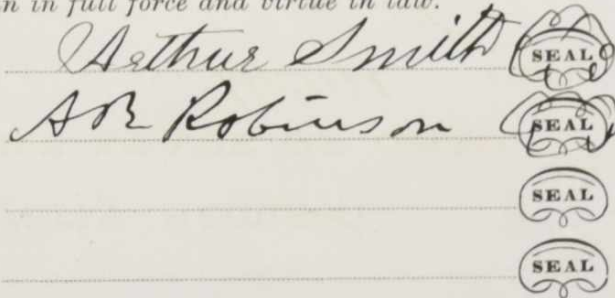 n in full force and virtue in law.
Arthur Smith SEAL
A B Robinson SEAL
SEAL
SEAL